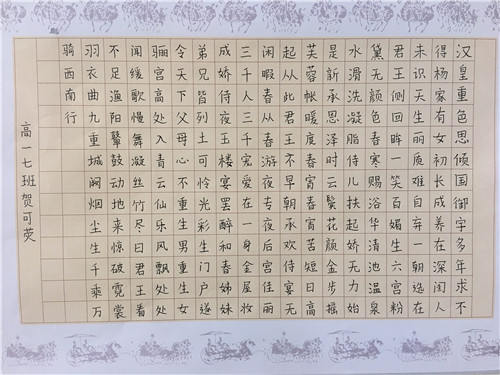 汉皇重色思倾国御宇多年求不
得杨家有女初长成养在深闺人
未识天生丽质难自弃一朝选在
君王侧回眸一笑百媚生六宫粉
黛无颜色春寒赐浴华清池温泉
水滑洗凝脂侍儿扶起娇无力始
是新承恩泽时云鬓花颜金步摇
芙蓉帐暖度春宵春宵苦短日高
起从此君王不早朝承欢侍宴无
闲暇春从春游夜专夜后宫佳丽
三千人三千宠爱在一身金屋妆
成娇侍夜玉楼宴罢醉和春姊妹
弟兄皆列土可怜光彩生门户遂
令天下父母心不重生男重生女
骊宫高处入青云仙乐风飘处处
闻缓歌慢舞凝丝竹尽日君王看
不足渔阳鼙鼓动地来惊破霓裳
羽衣曲九重城阙烟尘生千乘万
骑西南行
高一七班贺可荧